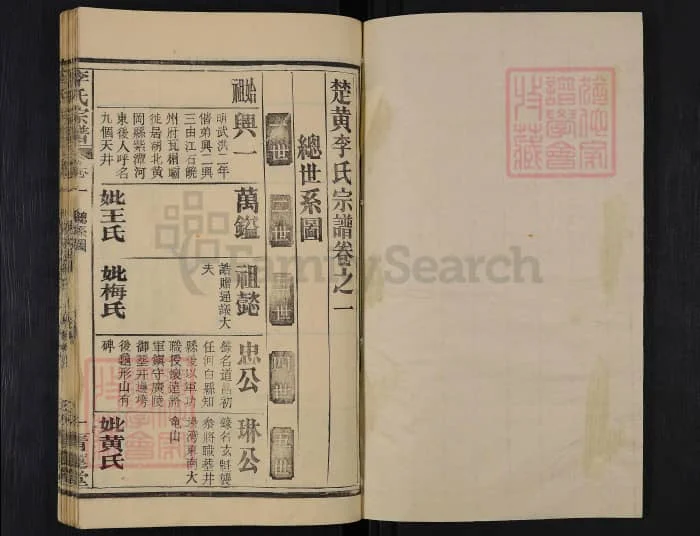 楚黄李氏宗譜卷之一
總世系圖
一世
二世
三世
四世
五世
始祖
興一
明武洪二年
偕弟興二興
三由江右饒
州府瓦硝壩
徙居湖北黄
岡縣紫潭河
東後人呼名
九個天井
萬鎰
妣王氏
祖懿
誥贈通議大
夫
妣梅氏
忠公
任河白縣知
縣後以軍功
職授懷遠將
軍鎮守廣陵
後龜形山有
碑
琳公
龜山
妣黄氏
李氏宗譜
卷一
總系圖
FamilySearch